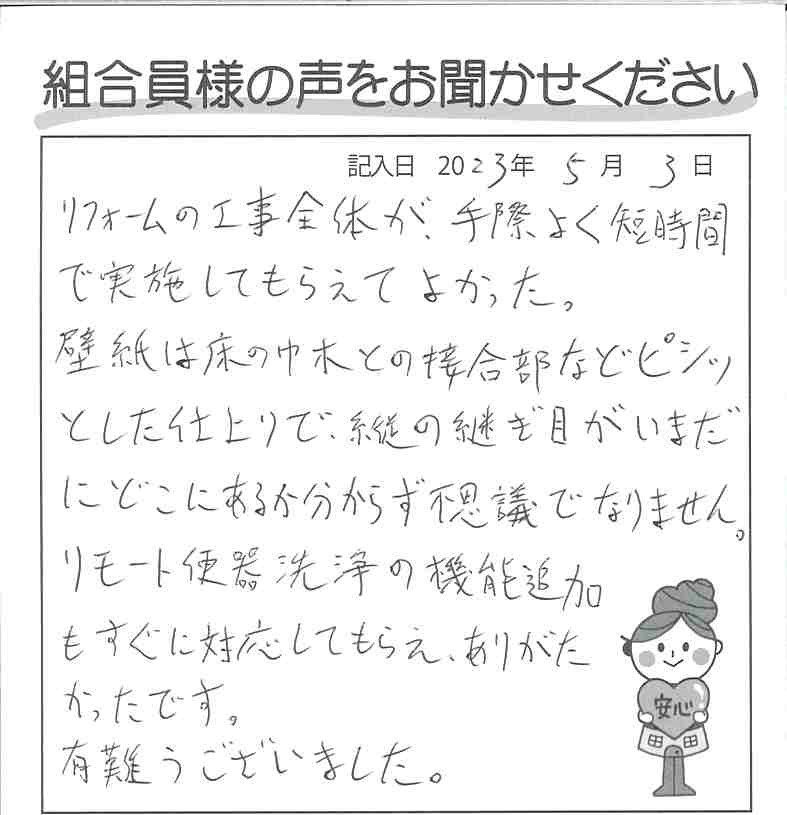 組合員様の声をお聞かせください
記入日 2023年 5月 3日
リフォームの工事全体が、手際よく短時間
で実施してもらえてよかった。
壁紙は床の巾木との接合部などピシッ
とした仕上りで、縦の継ぎ目がいまだ
にどこにあるか分からず不思議でなりません。
リモート便器洗浄の機能追加
もすぐに対応してもらえ、ありがた
かったです。
有難うございました。
安心